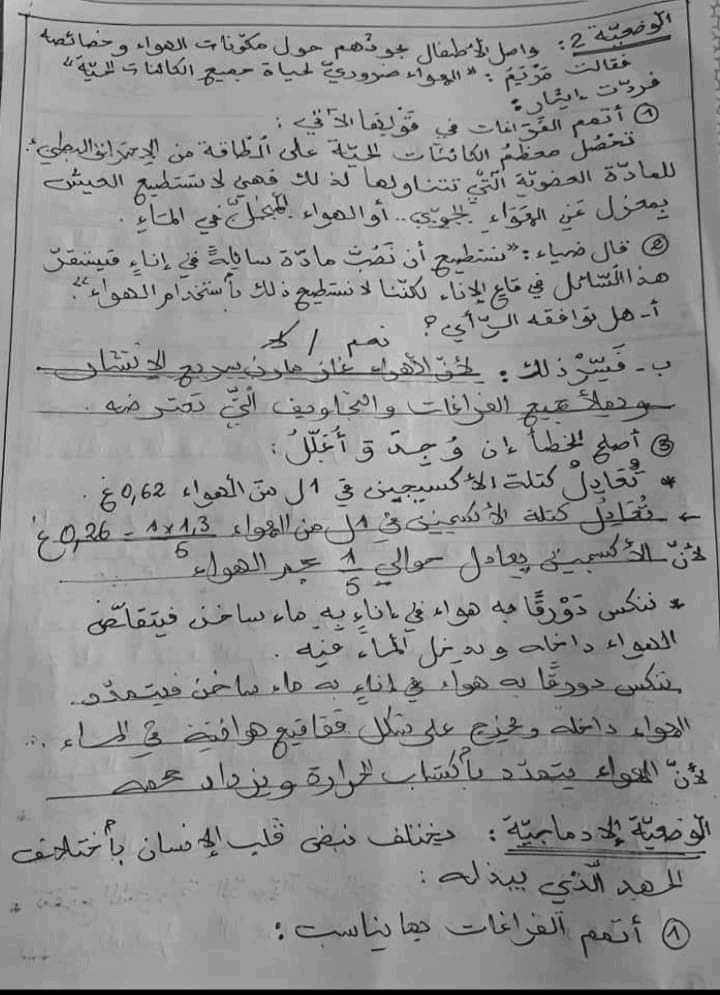 الوضعيّة 2: واصل الأطفال بحوثهم حول مكوّنات الهواء وخصائصه
فقالت مَرْيَمُ: "الهواء ضروريّ لحياة جميع الكائنات الحيّة"
فردّت إيثار:
① أتمم الفراغات في قَوْلِها الآتي:
تحْصُل معظمُ الكائنات الحيّة على الطّاقة من الإحتراق البطيء
للمادّة العضويّة الّتي تتناولها لذلك فهي لا تستطيع العيش
بمعزل عن الهَوَاءِ الجوّي.. أو الهواء المُنحَلّ في المَاءِ.
② قال ضياء: "نستطيع أن نَصُبّ مادّة سائلةً في إناءٍ فيستقرّ
هذا السّائل في قاعِ الإناء لكنّنا لا نستطيع ذلك بٱستخدام الهواء".
أ- هل توافقه الرّأي؟ نعم / لا
ب- فَسِّرْ ذلك: لأنّ الهواء غاز مارن سريع الإنتشار
ويملأ جميع الفراغات والتجاويف الّتي تعترضه.
③ أصلح الخطأ إن وُجِدَ وَ أُعَلّلُ:
* تُعَادِلُ كتلة الأكسيجين في 1ل من الهواء 0,62غ.
← تُعَادِلُ كتلة الأكسجين في 1ل من الهواء 1×1,3 / 5 = 0,26غ
لأنّ الأكسجين يعادل حوالي 1/5 حجم الهواء
* ننكس دَوْرقًا به هواء في إناءٍ به ماء ساخن فيتقلّص
الهواء داخله ويدخل الماء فيه.
ننكس دورقًا به هواء في إناءٍ به ماء ساخن فيتمدّد.
الهواء داخله ويخرج على شكل فقاقيع هوائيّة في الماء...
لأنّ الهواء يتمدّد بٱكتساب الحرارة ويزداد حجمه
الوضعيّة الإدماجيّة: يختلف نبض قلب الإنسان بٱختلاف
الجهد الّذي يبذله:
① أتمم الفراغات بما يناسب: